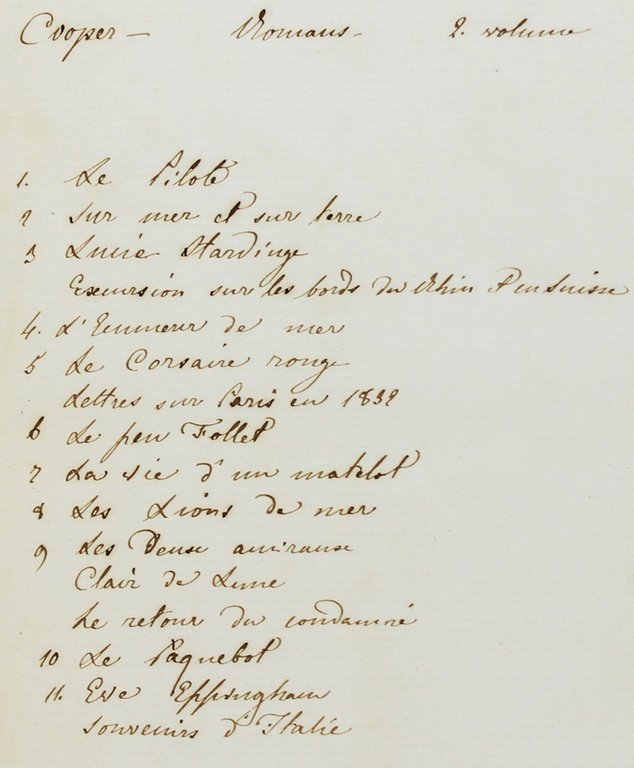 Cooper — Romans - 2. volume
1. Le Pilote
2 Sur mer et sur terre
3 Lucie Hardinge
Excursion sur les bords du Rhin & en Suisse
4. L'Ecumeur de mer
5 Le Corsaire rouge
Lettres sur Paris en 1832
6 Le feu Follet
7 La vie d'un matelot
8 Les Lions de mer
9 Les Deux amiraux
Clair de Lune
Le retour du condamné
10 Le Paquebot
11. Eve Effingham
Souvenirs d'Italie